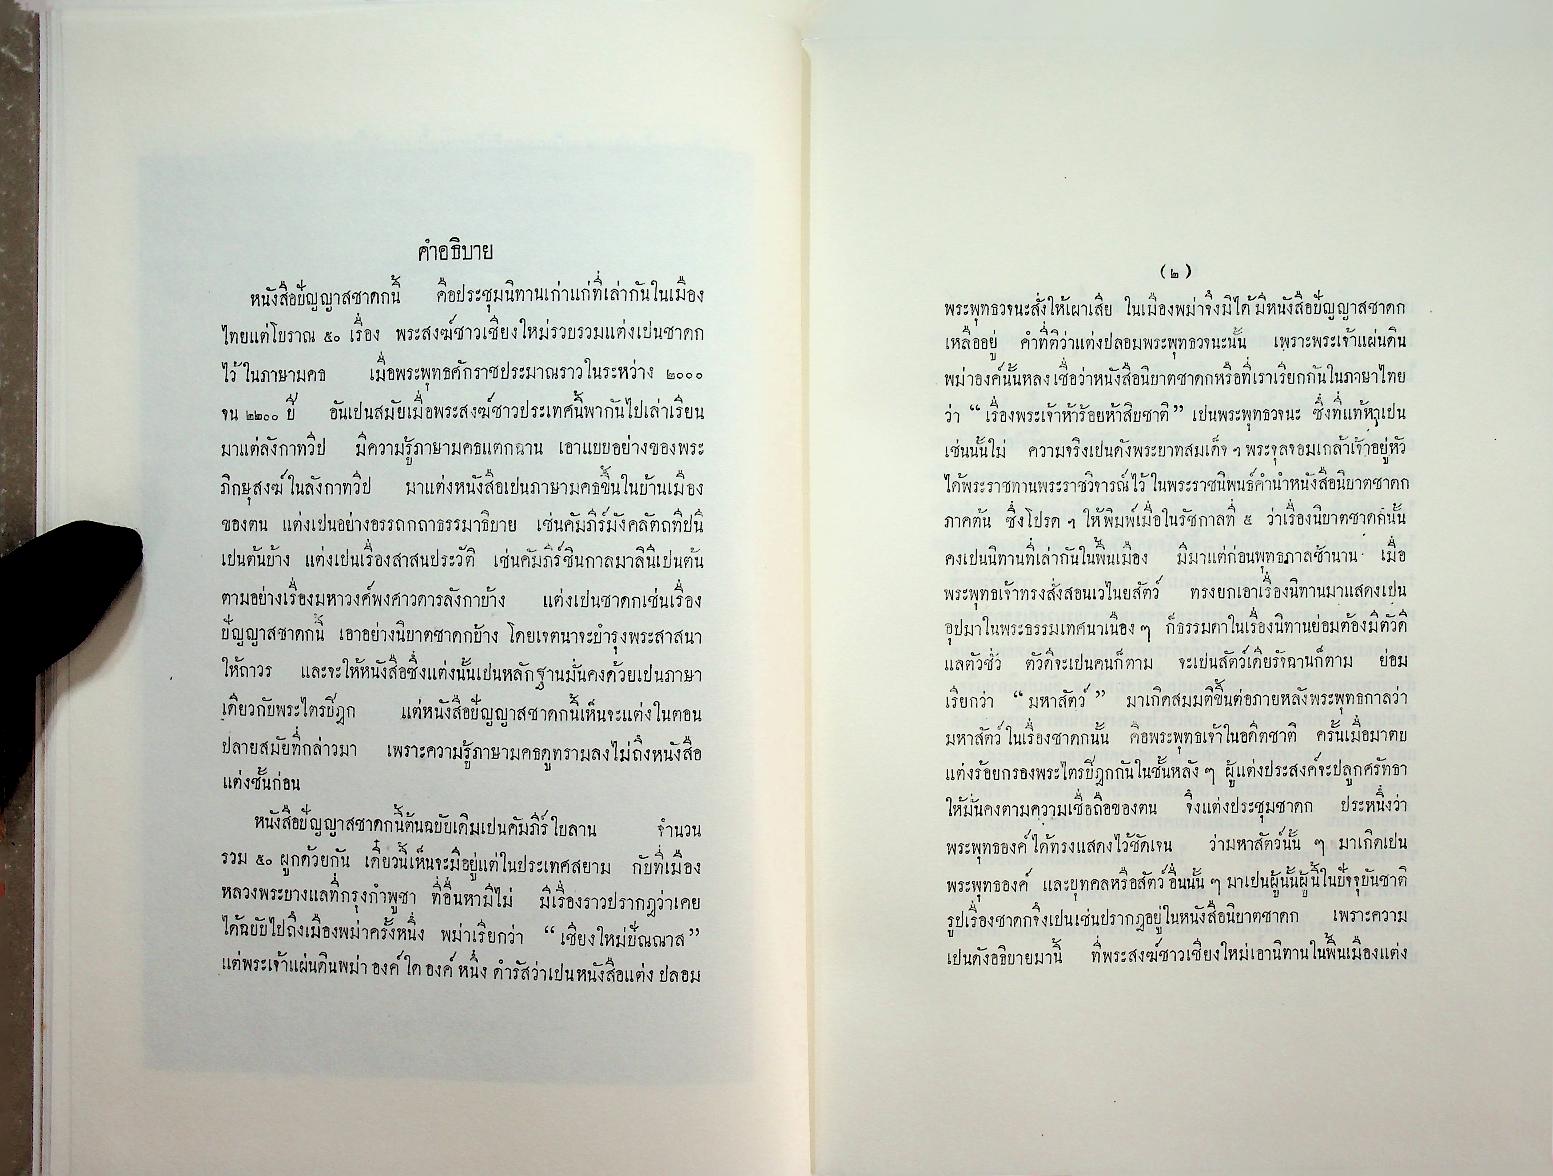 คำอธิบาย
หนังสือปัญญาสชาดกนี้ คือประชุมนิทานเก่าแก่ที่เล่ากันในเมือง
ไทยแต่โบราณ ๕๐ เรื่อง พระสงฆ์ชาวเชียงใหม่รวบรวมแต่งเป็นชาดก
ไว้ในภาษามคธ เมื่อพระพุทธศักราชประมาณราวในระหว่าง ๒๐๐๐
จน ๒๒๐๐ ปี อันเป็นสมัยเมื่อพระสงฆ์ชาวประเทศนี้พากันไปเล่าเรียน
มาแต่ลังกาทวีป มีความรู้ภาษามคธแตกฉาน เอาแบบอย่างของพระ
ภิกษุสงฆ์ในลังกาทวีป มาแต่งหนังสือเป็นภาษามคธขึ้นในบ้านเมือง
ของตน แต่งเป็นอย่างอรรถกถาธรรมาธิบาย เช่นคัมภีร์มังคลัตถทีปนี
เป็นต้นบ้าง แต่งเป็นเรื่องสาสนประวัติ เช่นคัมภีร์ชินกาลมาลินีเป็นต้น
ตามอย่างเรื่องมหาวงศ์พงศาวดารลังกาบ้าง แต่งเป็นชาดกเช่นเรื่อง
ปัญญาสชาดกนี้ เอาอย่างนิบาตชาดกบ้าง โดยเจตนาจะบำรุงพระสาสนา
ให้ถาวร และจะให้หนังสือซึ่งแต่งนั้นเป็นหลักฐานมั่นคงด้วยเป็นภาษา
เดียวกับพระไตรปิฎก แต่หนังสือปัญญาสชาดกนี้เห็นจะแต่งในตอน
ปลายสมัยที่กล่าวมา เพราะความรู้ภาษามคธดูทรามลงไม่ถึงหนังสือ
แต่งชั้นก่อน
หนังสือปัญญาสชาดกนี้ต้นฉบับเดิมเป็นคัมภีร์ใบลาน จำนวน
รวม ๕๐ ผูกด้วยกัน เดี๋ยวนี้เห็นจะมีอยู่แต่ในประเทศสยาม กับที่เมือง
หลวงพระบางแลที่กรุงกำพูชา ที่อื่นหามีไม่ มีเรื่องราวปรากฏว่าเคย
ได้ฉบับไปถึงเมืองพม่าครั้งหนึ่ง พม่าเรียกว่า “เชียงใหม่ปัณณาส”
แต่พระเจ้าแผ่นดินพม่า องค์ ใด องค์ หนึ่ง ดำรัสว่าเป็นหนังสือแต่ง ปลอม
(๒)
พระพุทธวจนะสั่งให้เผาเสีย ในเมืองพม่าจึงมิได้มีหนังสือปัญญาสชาดก
เหลืออยู่ คำที่ติว่าแต่งปลอมพระพุทธวจนะนั้น เพราะพระเจ้าแผ่นดิน
พม่าองค์นั้นหลง เชื่อว่าหนังสือนิบาตชาดกหรือที่เราเรียกกันในภาษาไทย
ว่า “เรื่องพระเจ้าห้าร้อยห้าสิบชาติ” เป็นพระพุทธวจนะ ซึ่งที่แท้หาเป็น
เช่นนั้นไม่ ความจริงเป็นดังพระบาทสมเด็จ ฯ พระจุลจอมเกล้าเจ้าอยู่หัว
ได้พระราชทานพระราชวิจารณ์ไว้ ในพระราชนิพนธ์คำนำหนังสือนิบาตชาดก
ภาคต้น ซึ่งโปรด ฯ ให้พิมพ์เมื่อในรัชกาลที่ ๕ ว่าเรื่องนิบาตชาดกนั้น
คงเป็นนิทานที่เล่ากันในพื้นเมือง มีมาแต่ก่อนพุทธกาลช้านาน เมื่อ
พระพุทธเจ้าทรงสั่งสอนเวไนยสัตว์ ทรงยกเอาเรื่องนิทานมาแสดงเป็น
อุปมาในพระธรรมเทศนาเนือง ๆ ก็ธรรมดาในเรื่องนิทานย่อมต้องมีตัวดี
แลตัวชั่ว ตัวดีจะเป็นคนก็ตาม จะเป็นสัตว์เดียรัจฉานก็ตาม ย่อม
เรียกว่า “มหาสัตว์” มาเกิดสมมติขึ้นต่อภายหลังพระพุทธกาลว่า
มหาสัตว์ ในเรื่องชาดกนั้น คือพระพุทธเจ้าในอดีตชาติ ครั้นเมื่อมาตบ
แต่งร้อยกรองพระไตรปิฎกกันในชั้นหลัง ๆ ผู้แต่งประสงค์จะปลูกศรัทธา
ให้มั่นคงตามความเชื่อถือของตน จึงแต่งประชุมชาดก ประหนึ่งว่า
พระพุทธองค์ ได้ทรงแสดงไว้ชัดเจน ว่ามหาสัตว์นั้น ๆ มาเกิดเป็น
พระพุทธองค์ และบุทคลหรือสัตว์ อื่นนั้น ๆ มาเป็นผู้นั้นผู้นี้ในปัจจุบันชาติ
รูปเรื่องชาดกจึงเป็นเช่นปรากฏอยู่ในหนังสือนิบาตชาดก เพราะความ
เป็นดังอธิบายมานี้ ที่พระสงฆ์ชาวเชียงใหม่เอานิทานในพื้นเมืองแต่ง